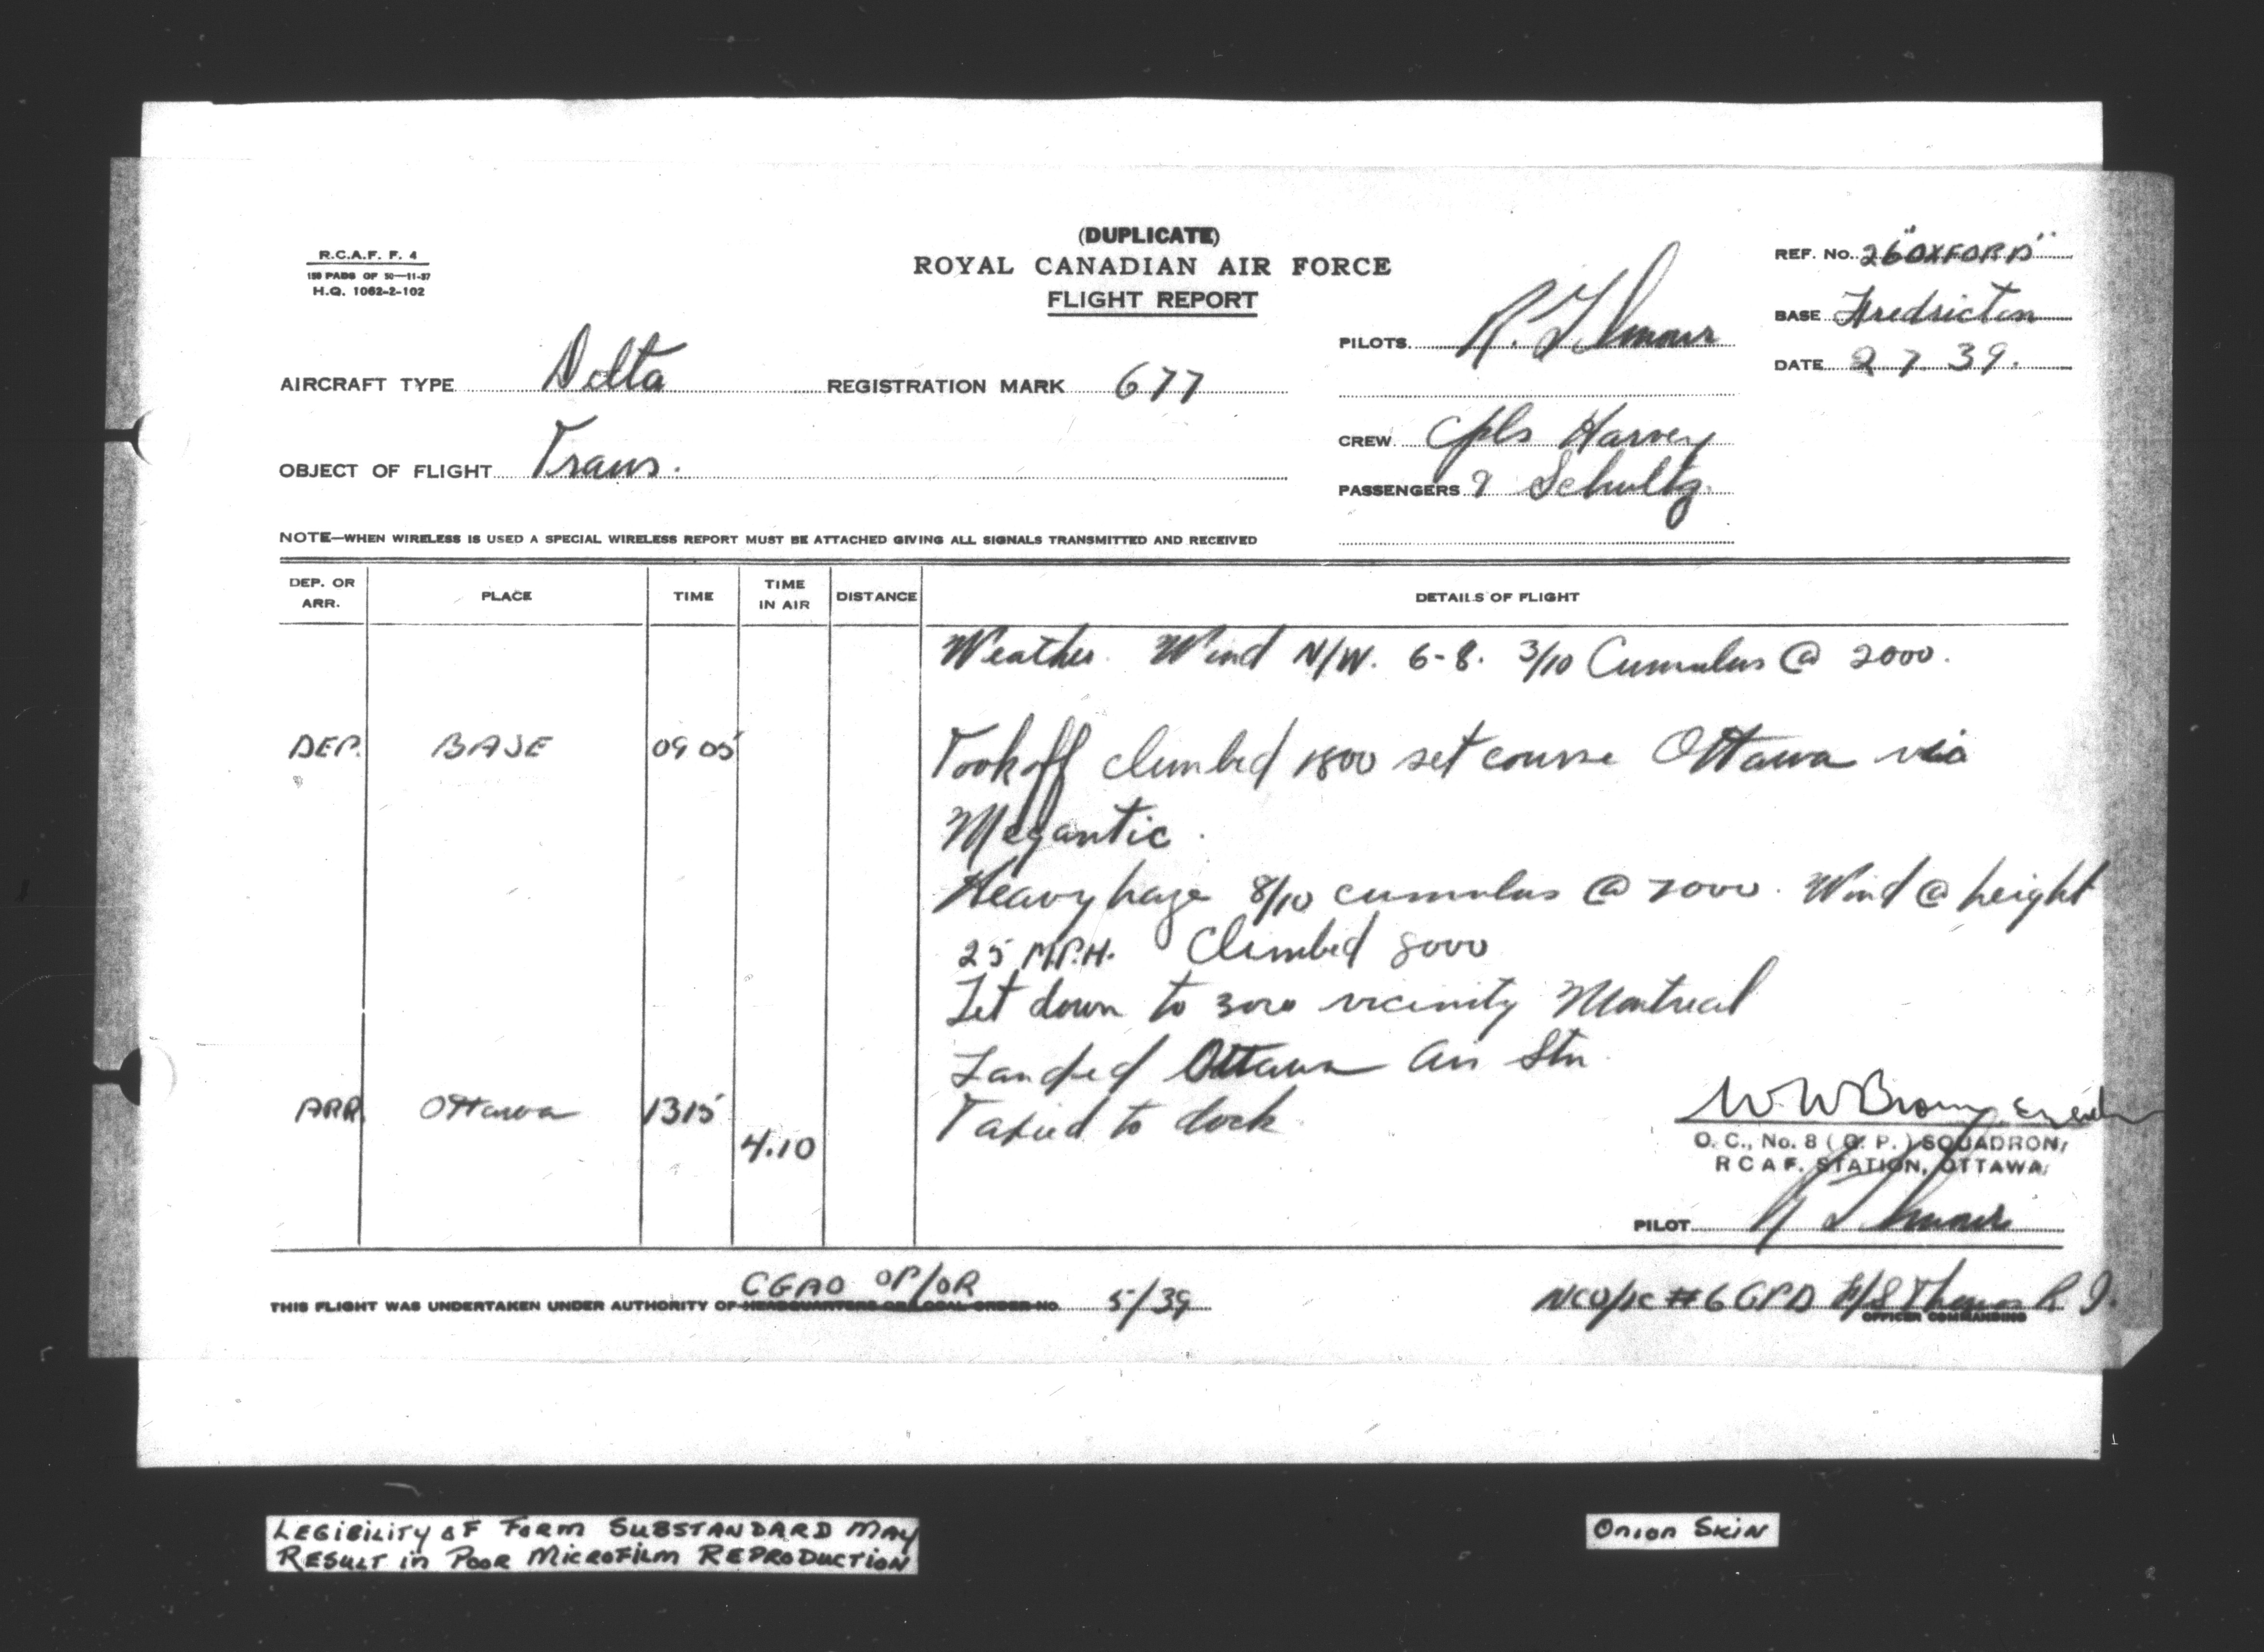 (DUPLICATE)
ROYAL CANADIAN AIR FORCE
FLIGHT REPORT
R.C.A.F. F. 4
150 PADS OF 50—11-37
H.Q. 1062-2-102
REF. No. 26 "OXFORD"
BASE Fredricton
DATE 2 7 39.
PILOTS R.
AIRCRAFT TYPE Delta REGISTRATION MARK 677
CREW Cpls Harvey
OBJECT OF FLIGHT Trans.
PASSENGERS Schultz
NOTE—WHEN WIRELESS IS USED A SPECIAL WIRELESS REPORT MUST BE ATTACHED GIVING ALL SIGNALS TRANSMITTED AND RECEIVED
DEP. OR ARR. PLACE TIME TIME IN AIR DISTANCE DETAILS OF FLIGHT
Weather. Wind N/W. 6-8. 3/10 Cumulus @ 2000.
DEP. BASE 0905 Took off climbed 1800 set course Ottawa via
Megantic.
Heavy haze 8/10 cumulus @ 7000. Wind @ height
25 M.P.H. Climbed 8000
Let down to 3000 vicinity Montreal
Landed Ottawa Air Stn
ARR Ottawa 1315 Taxied to dock
4.10
W.W. Brown
O. C., No. 8 (G. P.) SQUADRON,
R C A F. STATION, OTTAWA.
PILOT R
CGAO OP/OR
THIS FLIGHT WAS UNDERTAKEN UNDER AUTHORITY OF HEADQUARTERS OR LOCAL ORDER NO. 5/39
NCO/IC #6 GPD F/S Thomas R J.
OFFICER COMMANDING
LEGIBILITY OF FORM SUBSTANDARD MAY
RESULT in POOR MICROFILM REPRODUCTION
ONION SKIN